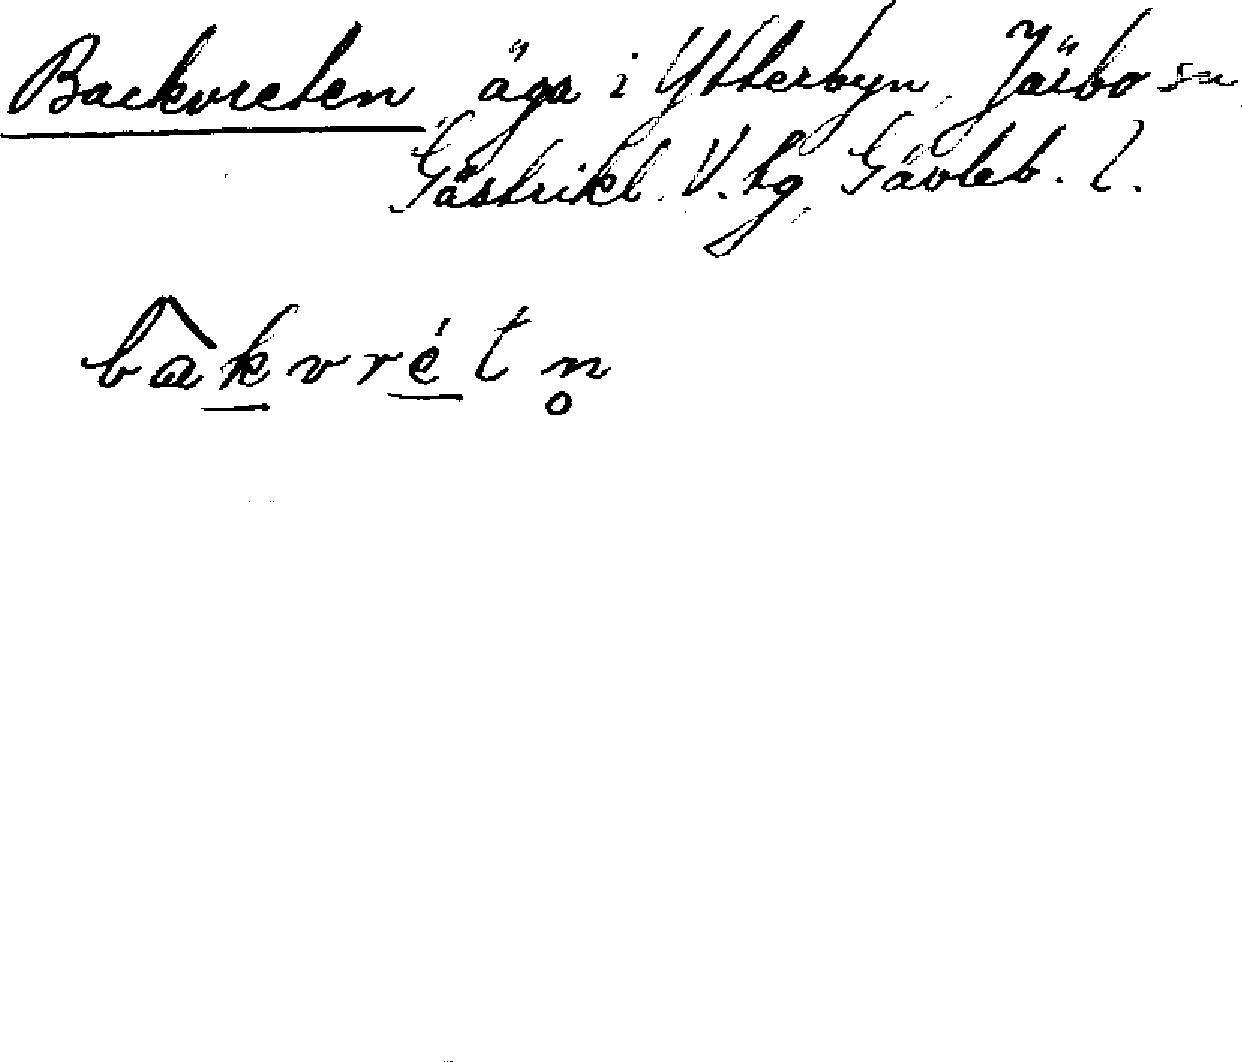 Backvreten äga i Ytterbyn, Järbo sn
Gästrikl. V. hg, Gävleb. l.
bâkvrétn̥